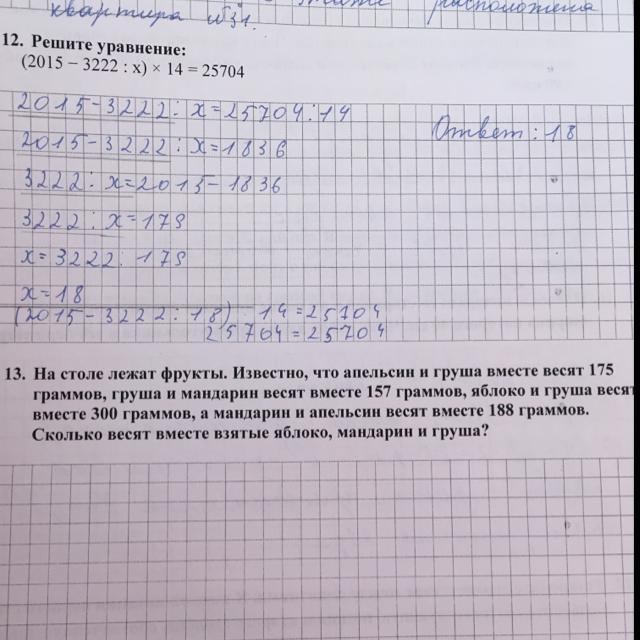 квартира №31. расположена
12. Решите уравнение:
(2015 − 3222 : x) × 14 = 25704
2015-3222: x=25704:14
Ответ: 18
2015-3222: x=1836
3222: x=2015-1836
3222: x=179
x=3222:179
x=18
(2015-3222:18)·14=25704
25704=25704
13. На столе лежат фрукты. Известно, что апельсин и груша вместе весят 175
граммов, груша и мандарин весят вместе 157 граммов, яблоко и груша весят
вместе 300 граммов, а мандарин и апельсин весят вместе 188 граммов.
Сколько весят вместе взятые яблоко, мандарин и груша?